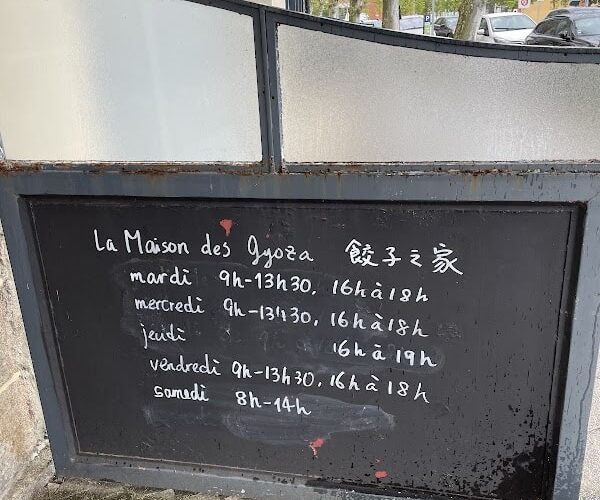 La Maison des Gyoza 餃子之家
mardi 9h-13h30, 16h à 18h
mercredi 9h-13h30, 16h à 18h
jeudi 16h à 19h
vendredi 9h-13h30, 16h à 18h
samedi 8h-14h